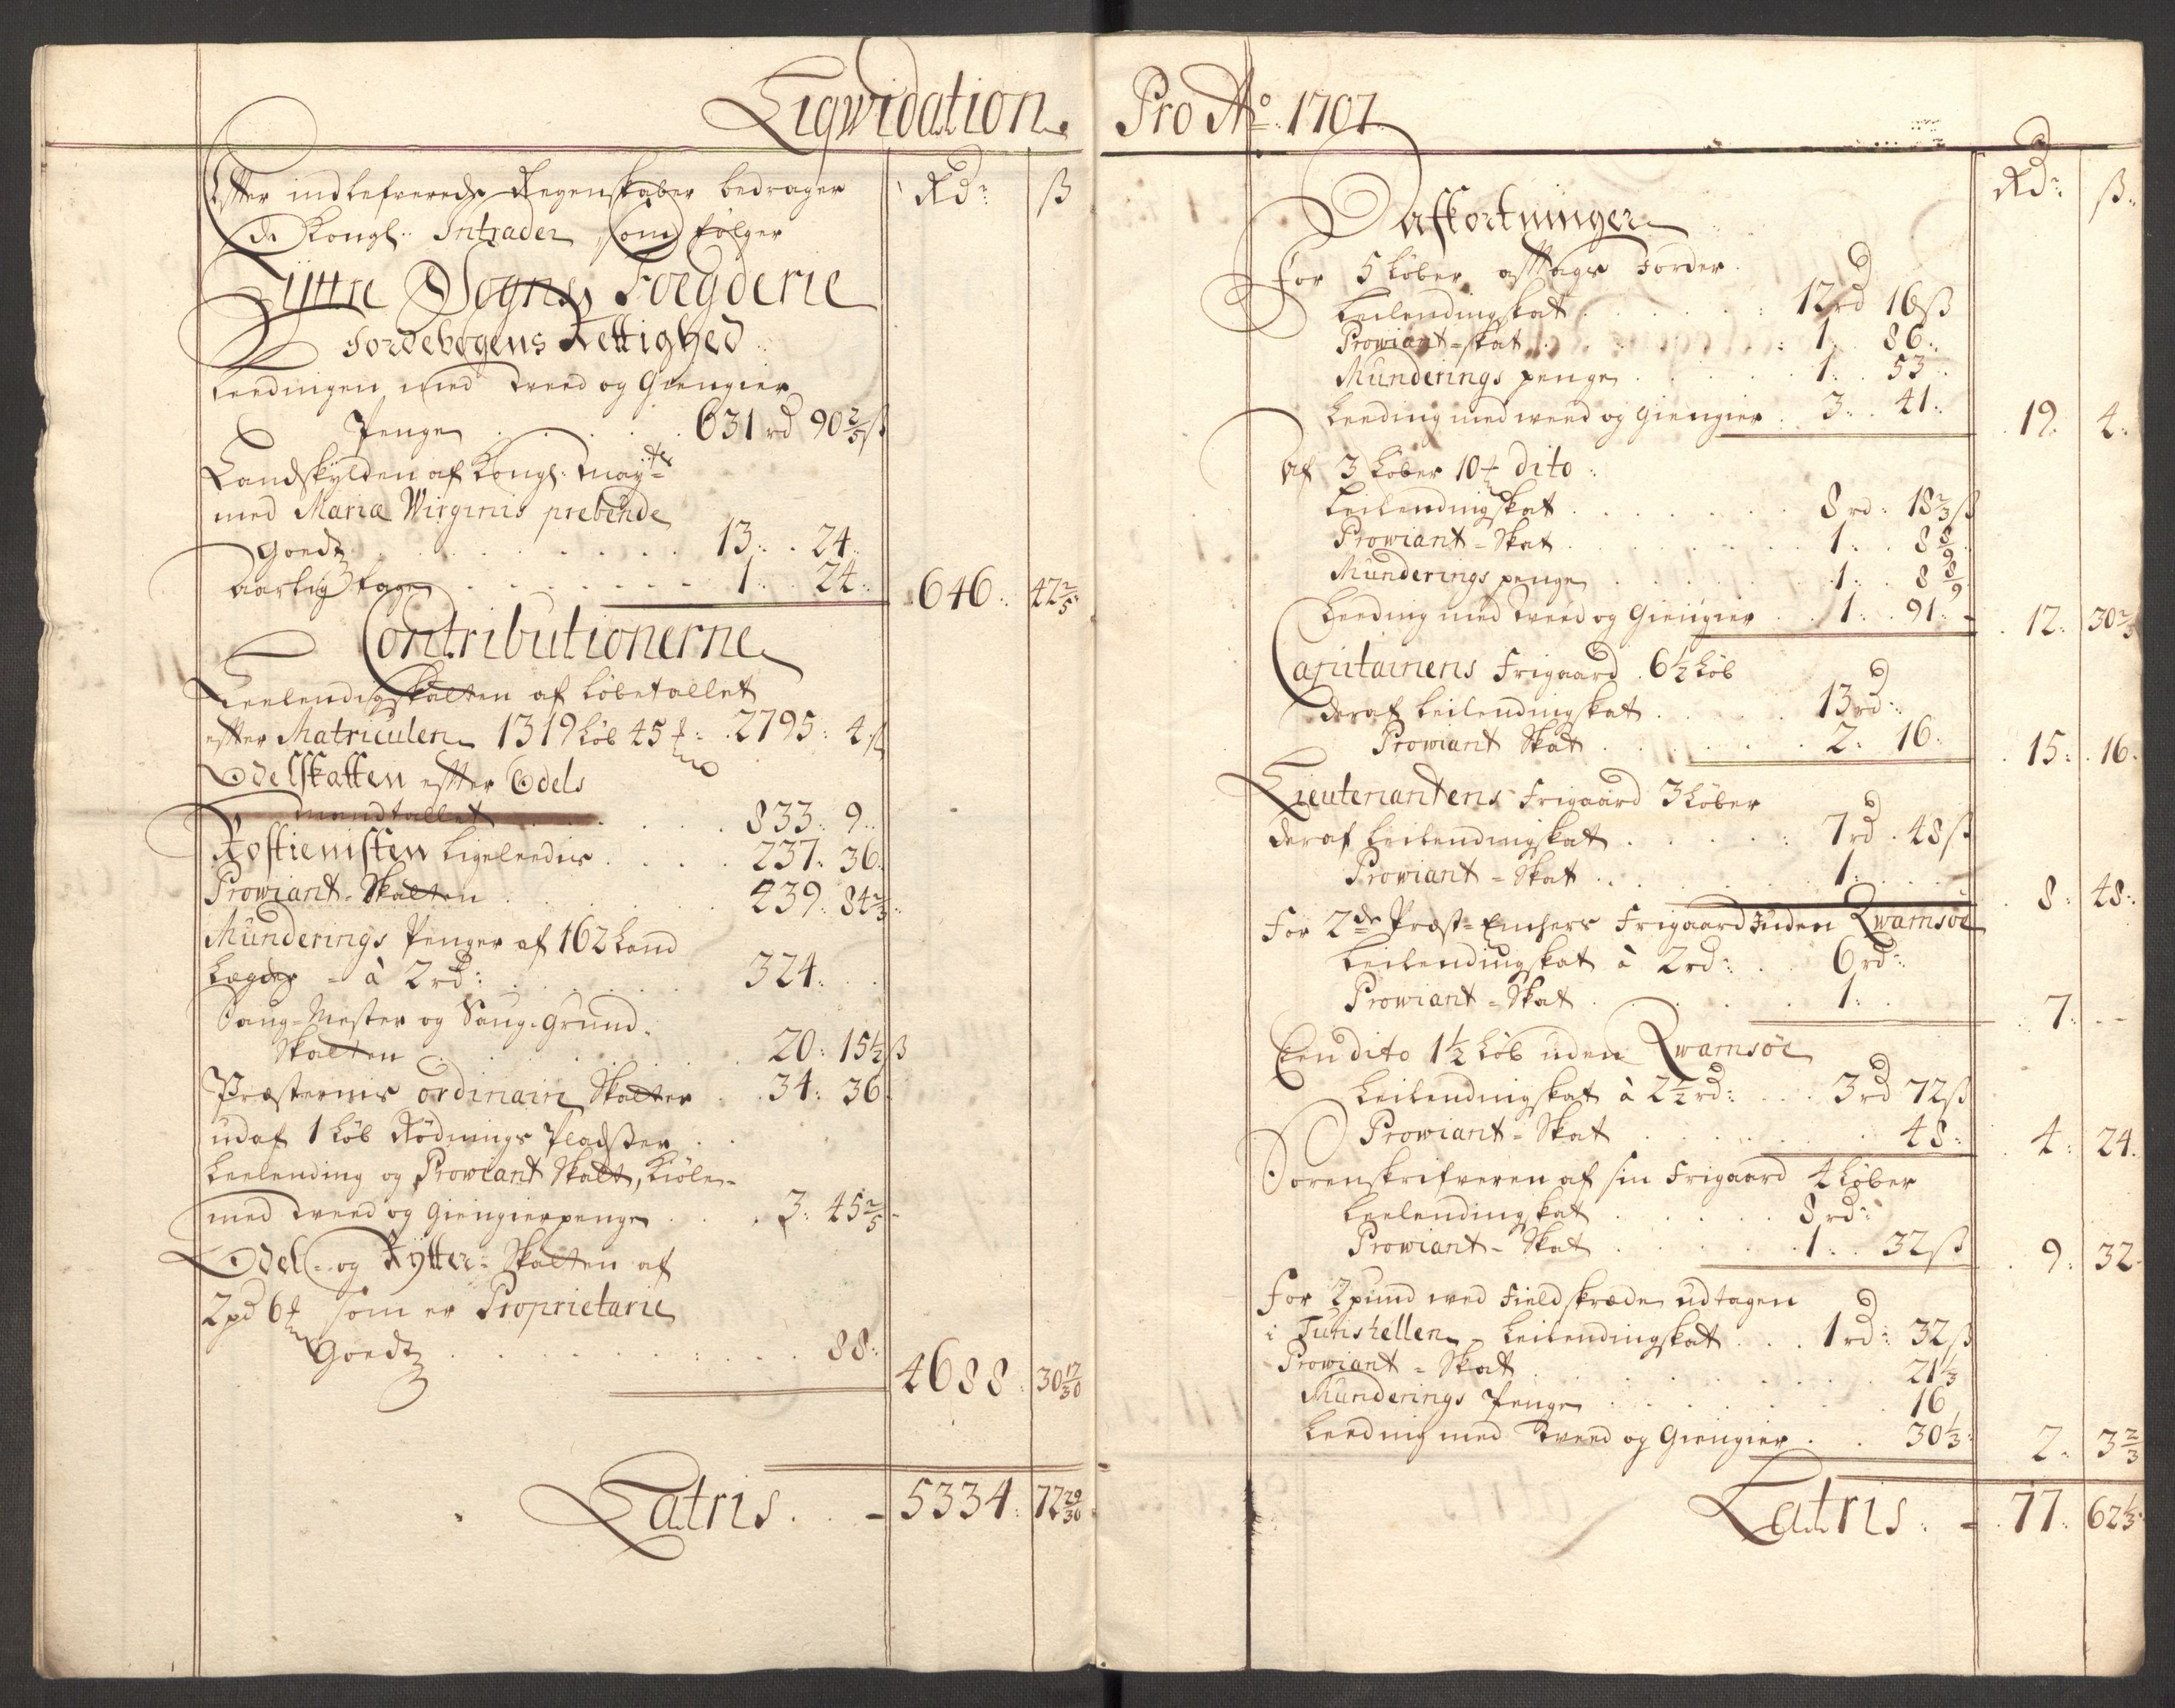 Liqwidation
Efter indlefverede Regenskaber bedrager
de Kongl: Intrader, som følger
Rd: ß
Yttre Sogns Foegderie
Jordebogens Rettighed
Leedingen med Weed og Giengier
Penge . . . . . 631 rd 90 2/5 ß
Landskylden af Kongl: May:ts
med Mariæ Wirginis prebende
Goedz . . . . . 13: 24:
Aarlig tage . . . . . 1: 24: 646: 42 2/5:
Contributionerne
Leelendigskatten af Løbetallet
efter Matriculen 1319 Løb 45 2795: 4 ß
Odelskatten efter Odels
mandtallet . . . . . 833: 9:
Rostienisten ligeledis . . . . 237: 36:
Prowiant-Skatten . . . . . 439: 84 2/3:
Munderings Penger af 162 Land
Lægder - à 2 rd: . . . . 324:
Saug-Mester og Saug-Grund-
Skatten . . . . . 20: 15 1/2 ß
Præsternis ordinair Skatter . 34: 36
udaf 1 Løb Rødnings Pladser . .
Leelending og Prowiant Skatt,
med Weed og Giengierpenge . . . 3: 45 2/5
Odel- og Rytter-Skatten af
2 pd 6 som er Proprietarie
Goedz . . . . . 88: 4688: 30 17/30
Latris . . - 5334: 72 29/30
Pro Ao: 1707
Rd: ß:
Afkortninger
For 5 Løber aftagne Jorder
Leilendingskat . . . . . 12 rd 16 ß
Prowiant-skat . . . . . 1: 86:
Munderings penge . . . . 1: 53:
Leeding med weed og Giengier . 3: 41: 19: 4:
Af 3 Løber 10 dito:
Leilendingskat . . . . . 8 rd: 18 2/3 ß
Prowiant-Skat . . . . . 1: 8 8/9
Munderings penge . . . . . 1: 8 8/9
Leeding med Weed og Giengier . . 1: 91: 12: 30 2/3
Capitainens Frigaard 6 1/2 Løb
deraf Leilendingskat . . . . 13 rd:
Prowiant Skat . . . . . 2: 16: 15: 16:
Lieutenantens Frigaard 3 Løber
deraf Leilendingskat . . . . 7 rd 48 ß
Prowiant-Skat . . . . . 1: 8: 48:
For 2de Præst-Enchers Frigaard inden Qwamsøe
Leilendingskat à 2 rd: . . 6 rd:
Prowiant-Skat . . . . . 1: 7: --
Een dito 1 1/2 Løb uden Qwamsøe
Leilendingskat à 2 1/2 rd: . . . 3 rd 72 ß
Prowiant-Skat . . . . . 48: 4: 24:
Sorenskrifveren af sin Frigaard 4 Løber
Leelendingskat . . . . . 8 rd:
Prowiant-Skat . . . . . 1: 32 ß 9: 32:
For 2 pund wed Fieldskræde udtagen
i Leilendingskat . . . 1 rd: 32 ß
Prowiant-Skat . . . . . 21 1/3
Munderings Penge . . . . . 16
Leeding med Weed og Giengier . . 30 1/3: 2: 3 2/3
Latris: - 77: 62 1/3: